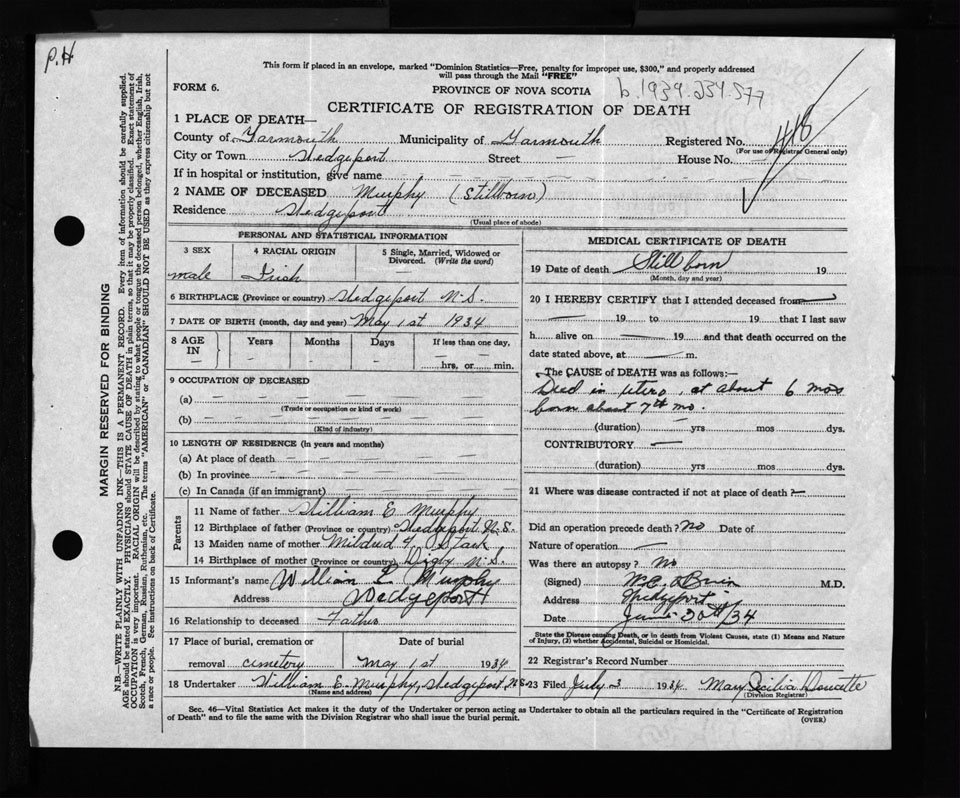 P.H.
This form if placed in an envelope, marked "Dominion Statistics—Free, penalty for improper use, $300," and properly addressed
will pass through the Mail "FREE"
FORM 6.
PROVINCE OF NOVA SCOTIA
b.1934.234.577
CERTIFICATE OF REGISTRATION OF DEATH
1 PLACE OF DEATH—
County of Yarmouth Municipality of Yarmouth Registered No.
(For use of Registrar General only)
City or Town Wedgeport Street — House No. —
If in hospital or institution, give name
2 NAME OF DECEASED Murphy (Stillborn)
Residence Wedgeport
(Usual place of abode)
PERSONAL AND STATISTICAL INFORMATION
3 SEX 4 RACIAL ORIGIN 5 Single, Married, Widowed or
Divorced. (Write the word)
male Irish —
6 BIRTHPLACE (Province or country) Wedgeport N.S.
7 DATE OF BIRTH (month, day and year) May 1st 1934
8 AGE IN Years Months Days If less than one day,
— — — hrs. or min.
9 OCCUPATION OF DECEASED
(a) —
(Trade or occupation or kind of work)
(b) —
(Kind of industry)
10 LENGTH OF RESIDENCE (in years and months)
(a) At place of death — —
(b) In province — —
(c) In Canada (if an immigrant) — —
Parents
11 Name of father William E. Murphy
12 Birthplace of father (Province or country) Wedgeport N.S.
13 Maiden name of mother Mildred Stark
14 Birthplace of mother (Province or country) Digby N.S.
15 Informant's name William E. Murphy
Address Wedgeport
16 Relationship to deceased Father
17 Place of burial, cremation or Date of burial
removal cemetery May 1st 1934
18 Undertaker William E. Murphy, Wedgeport N.S.
(Name and address)
MEDICAL CERTIFICATE OF DEATH
19 Date of death Still born 19
(Month, day and year)
20 I HEREBY CERTIFY that I attended deceased from —
— 19 to — 19 that I last saw
h alive on — 19 and that death occurred on the
date stated above, at — m.
The CAUSE of DEATH was as follows:—
Died in utero, at about 6 mos
born about 7th mo.
(duration) yrs mos dys.
CONTRIBUTORY —
(duration) yrs mos dys.
21 Where was disease contracted if not at place of death? —
Did an operation precede death? No Date of
Nature of operation —
Was there an autopsy? No
(Signed) M.C. O'Brien M.D.
Address Wedgeport
Date June 20th/34
State the Disease causing Death, or in death from Violent Causes, state (1) Means and Nature
of Injury, (2) whether Accidental, Suicidal or Homicidal.
22 Registrar's Record Number
23 Filed July 3 1934 Mary Cecilia Doucette
(Division Registrar)
Sec. 46—Vital Statistics Act makes it the duty of the Undertaker or person acting as Undertaker to obtain all the particulars required in the "Certificate of Registration
of Death" and to file the same with the Division Registrar who shall issue the burial permit.
(OVER)
MARGIN RESERVED FOR BINDING
N.B.—WRITE PLAINLY WITH UNFADING INK—THIS IS A PERMANENT RECORD. Every item of information should be carefully supplied.
AGE should be stated EXACTLY. PHYSICIANS should STATE CAUSE OF DEATH in plain terms, so that it may be properly classified. Exact statement of
OCCUPATION is very important. RACIAL ORIGIN will be described by stating to what people or tongue the deceased person belonged, whether English, Irish,
Scotch, French, German, Russian, Ruthenian, etc. The terms "AMERICAN" or "CANADIAN" SHOULD NOT BE USED as they express citizenship but not
a race or people. See instructions on back of Certificate.